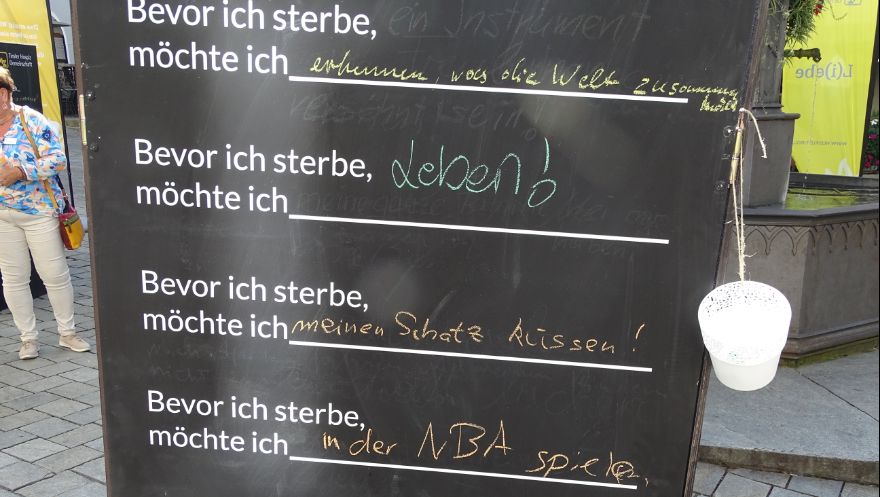 Bevor ich sterbe,
möchte ich erkennen, was die Welt zusammen
hält
Bevor ich sterbe, Leben!
möchte ich
Bevor ich sterbe,
möchte ich meinen Schatz küssen!
Bevor ich sterbe,
möchte ich in der NBA spielen.
Tiroler Hospiz
Gemeinschaft
L(i)ebe